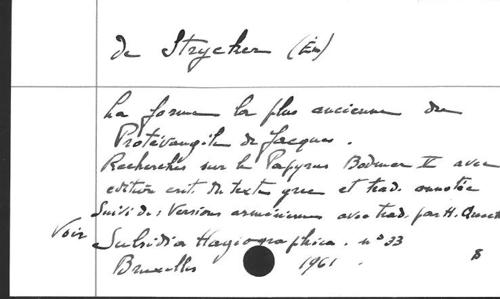 de Strycker (Ém)
La forme la plus ancienne du
Protévangile de Jacques.
Recherches sur le Papyrus Bodmer V avec
édition crit. du texte grec et trad. annotée
Suivi de: Versions arméniennes avec trad. par H. Quecke
Voir Subsidia Hagiographica. n° 33
Bruxelles 1961.